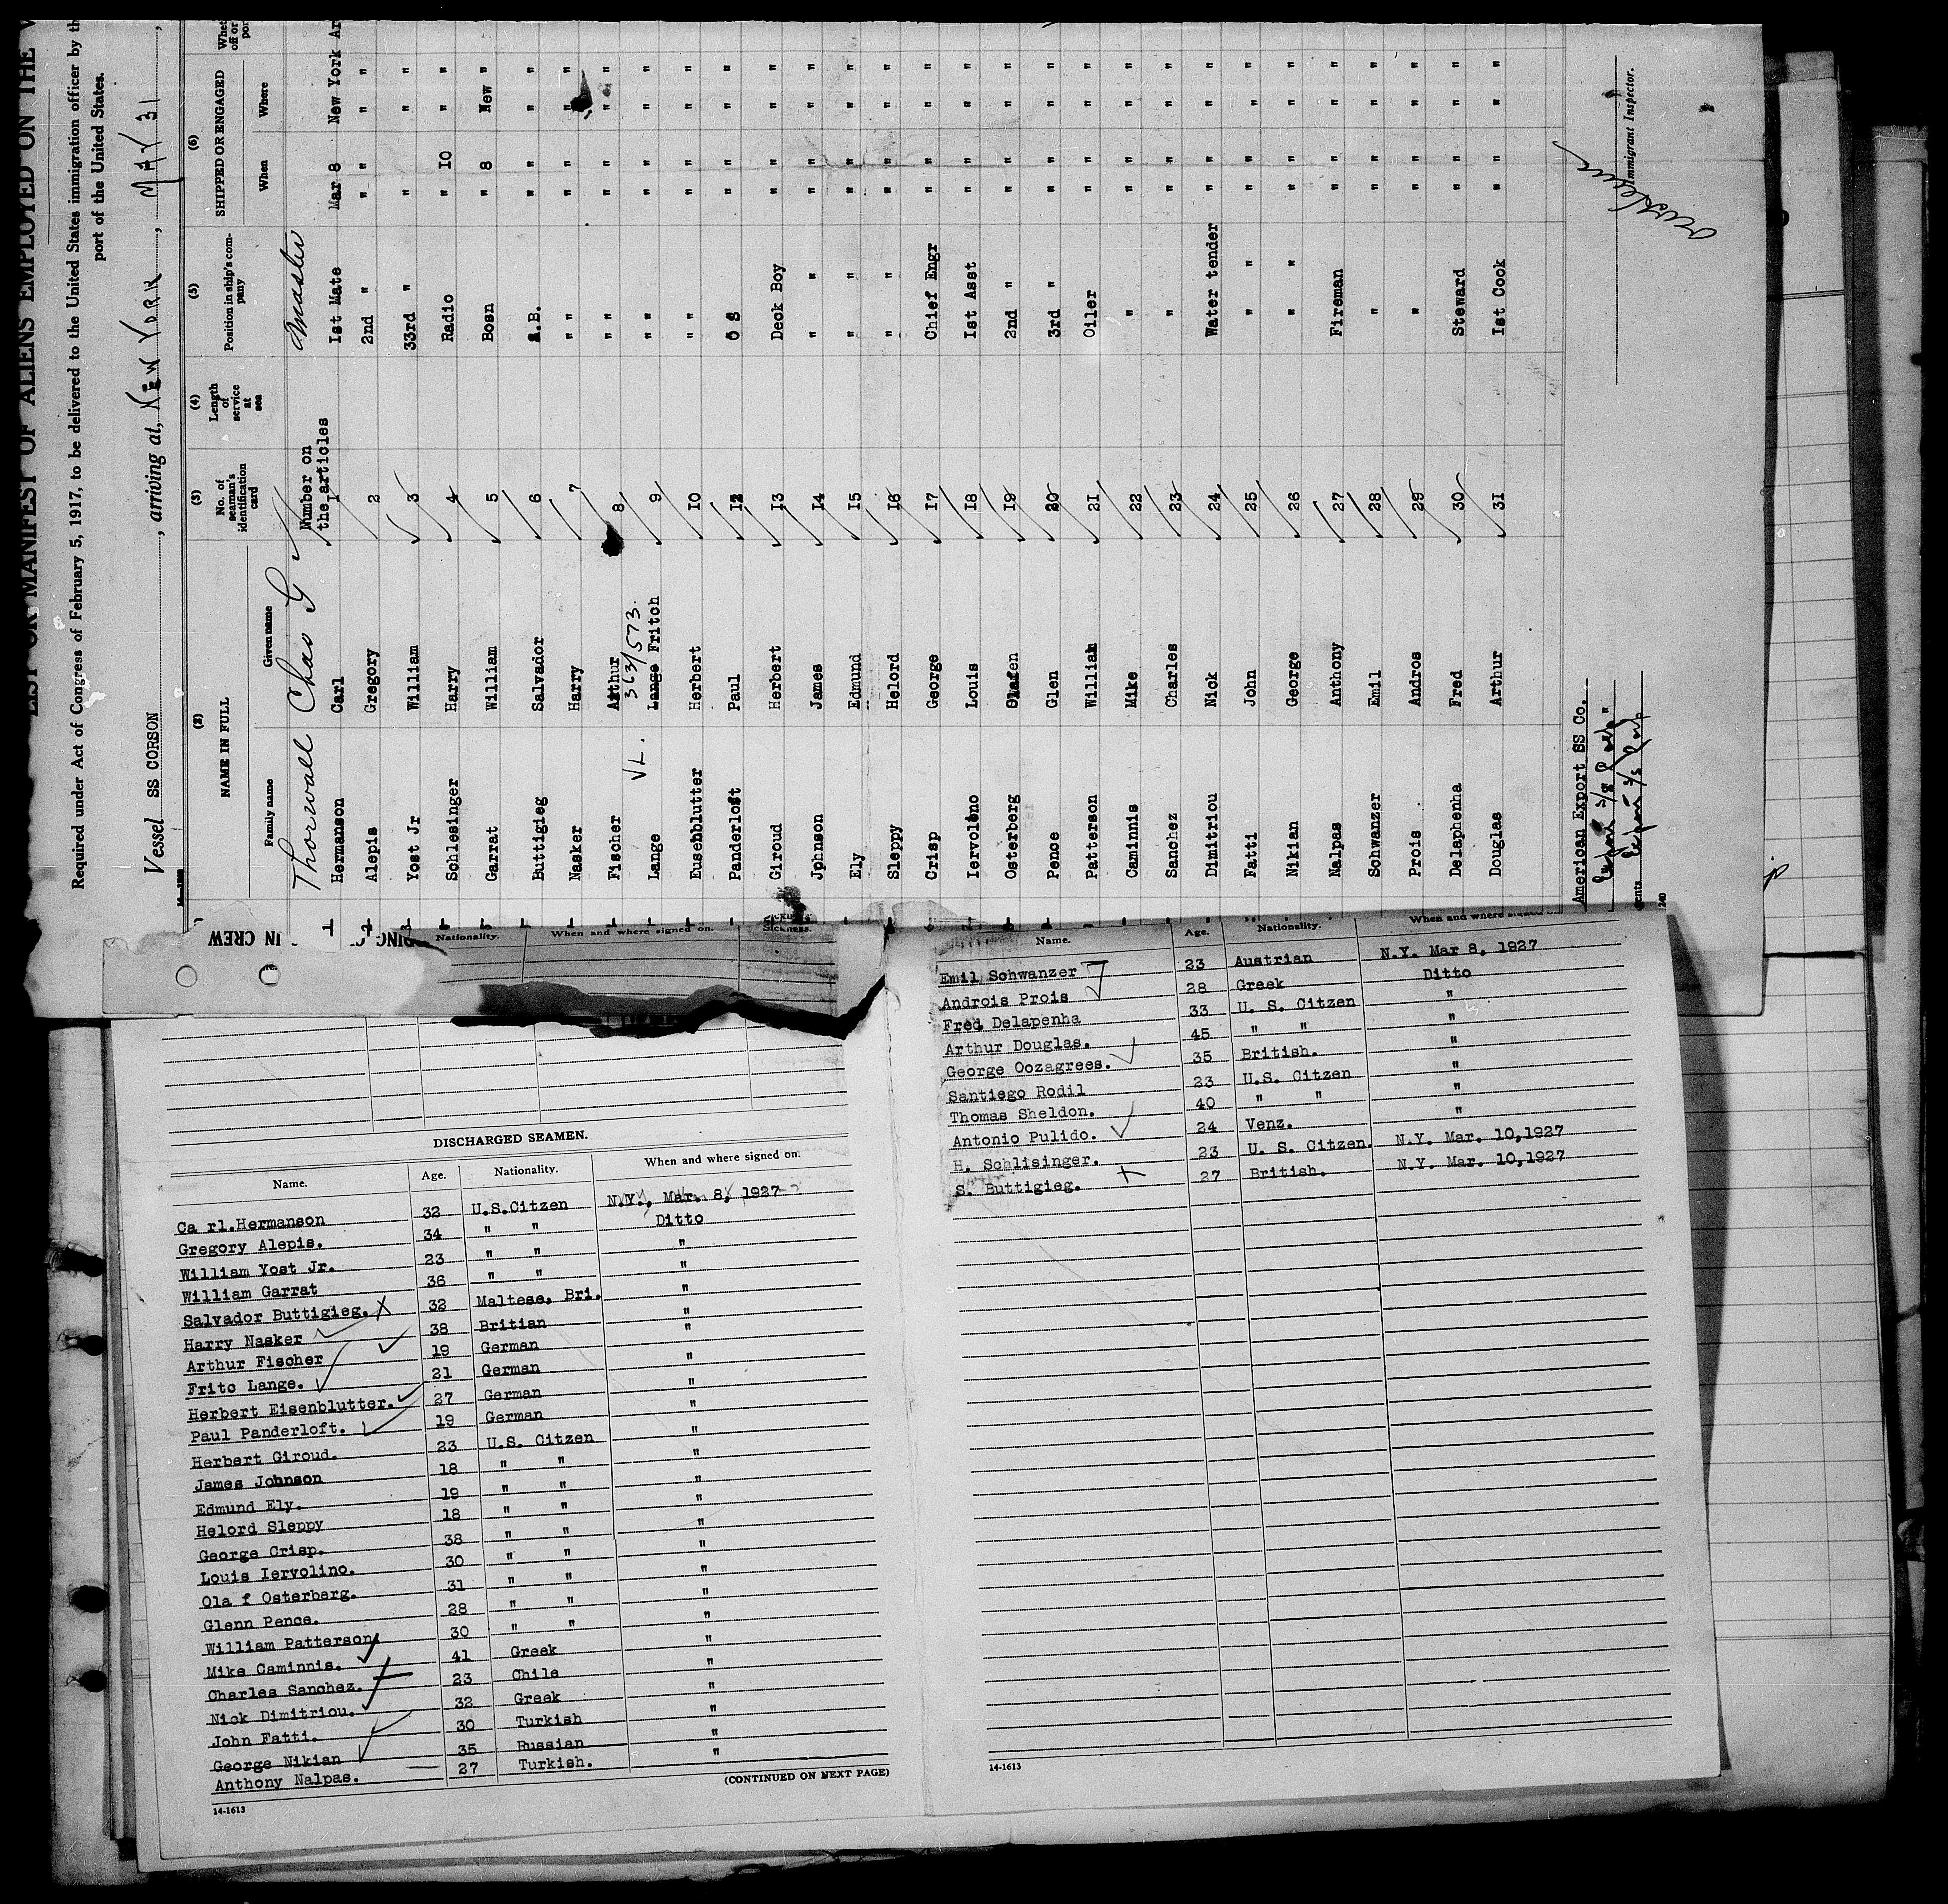 LIST OR MANIFEST OF ALIENS EMPLOYED ON THE
Required under Act of Congress of February 5, 1917, to be delivered to the United States immigration officer by th
port of the United States.
Vessel SS CORSON, arriving at, NEW YORK, MAY 31,
(2) (3) (4) (5) (6)
NAME IN FULL No. of seaman's identification card Length of service at sea Position in ship's company SHIPPED OR ENGAGED Whet off or por
Family name Given name When Where
Thorwall Chas G Master
Number on the articles
Hermanson Carl 1 1st Mate Mar 8 New York Ar
Alepis Gregory 2 2nd " " " " "
Yost Jr William 3 33rd " " " " "
Schlesinger Harry 4 Radio " 10 " "
Garrat William 5 Bosn " 8 New "
Buttigieg Salvador 6 A.B. " " " "
Nasker Harry 7 " " " " " "
Fischer Arthur 8 " " " " " "
VL. 363/573.
Lange Lange Fritch 9 " " " " " "
Eusebblutter Herbert 10 " " " " " "
Panderloft Paul 12 O S " " " "
Giroud Herbert 13 Deck Boy " " " "
Johnson James 14 " " " " "
Ely Edmund 15 " " " " "
Sleppy Helord 16 " " " " "
Crisp George 17 Chief Engr " " " "
Iervolino Louis 18 1st Asst " " " "
Osterberg Olafen 19 2nd " " " " "
Pence Glen 20 3rd " " " " "
Patterson William 21 Oiler " " " "
Caminnis Mike 22 " " " " "
Sanchez Charles 23 " " " " "
Dimitriou Nick 24 Water tender " " " "
Fatti John 25 " " " " " "
Nikian George 26 " " " " " "
Nalpas Anthony 27 Fireman " " " "
Schwanzer Emil 28 " " " " "
Prois Andros 29 " " " " "
Delaphenha Fred 30 Steward " " " "
Douglas Arthur 31 1st Cook " " " "
American Export SS Co.
Immigrant Inspector.
240
IN CREW
Nationality. When and where signed on. Sickness.
DISCHARGED SEAMEN.
Name. Age. Nationality. When and where signed on.
Ca rl.Hermanson 32 U.S.Citzen N.Y., Mar. 8, 1927
Gregory Alepis. 34 " " Ditto
William Yost Jr. 23 " " "
William Garrat 36 " " "
Salvador Buttigieg. X 32 Maltese, Bri. "
Harry Nasker 38 Britian "
Arthur Fischer 19 German "
Frito Lange. 21 German "
Herbert Eisenblutter. 27 German "
Paul Panderloft. 19 German "
Herbert Giroud. 23 U.S. Citzen "
James Johnson 18 " " "
Edmund Ely. 19 " " "
Helord Sleppy 18 " " "
George Crisp. 38 " " "
Louis Iervolino. 30 " " "
Ola f Osterberg. 31 " " "
Glenn Pence. 28 " " "
William Patterson 30 " " "
Mike Caminnis. 41 Greek "
Charles Sanchez. 23 Chile "
Nick Dimitriou. 32 Greek "
John Fatti. 30 Turkish "
George Nikian 35 Russian "
Anthony Nalpas. 27 Turkish. "
(CONTINUED ON NEXT PAGE)
14-1613
Name. Age. Nationality. When and where signed on
Emil Schwanzer 23 Austrian N.Y. Mar 8, 1927
Androis Prois 28 Greek Ditto
Fred Delapenha 33 U. S. Citzen "
Arthur Douglas. 45 " " "
George Oozagrees. 35 British. "
Santiego Rodil 23 U.S. Citzen "
Thomas Sheldon. 40 " " "
Antonio Pulido. 24 Venz. "
H. Schlisinger. 23 U. S. Citzen. N.Y. Mar. 10,1927
S. Buttigieg. 27 British. N.Y. Mar. 10,1927
14-1613